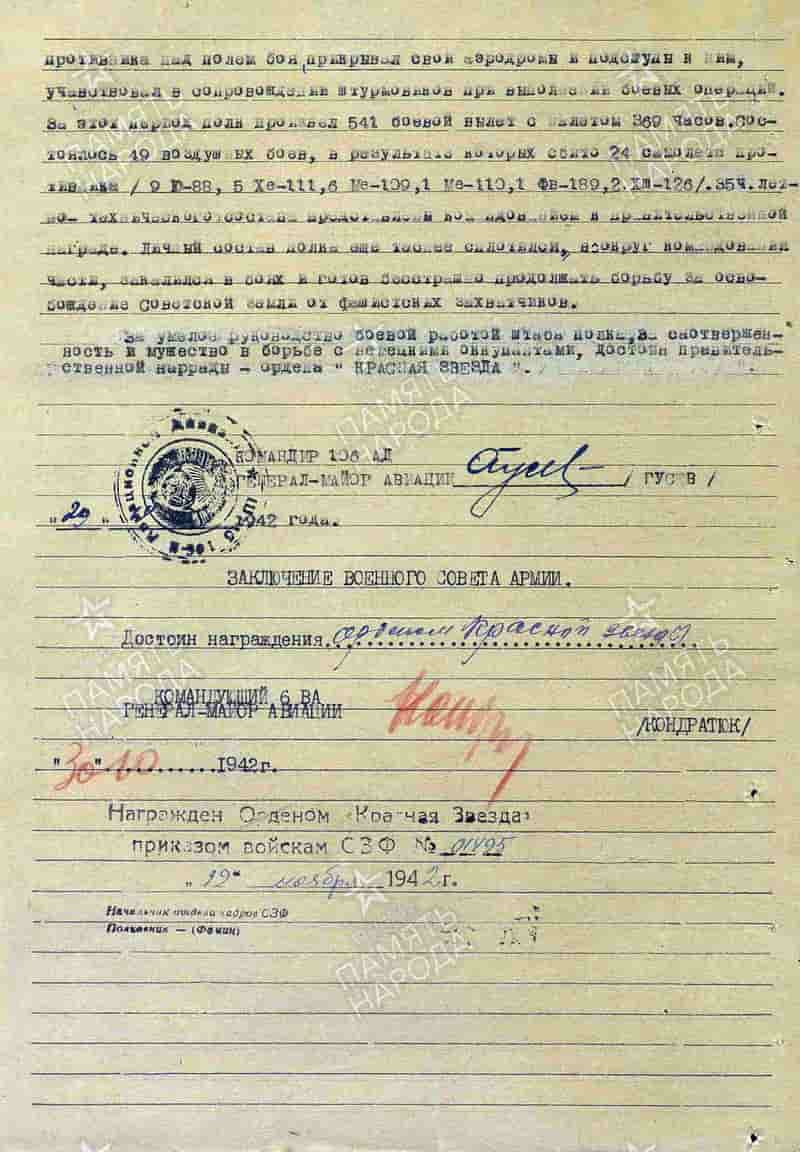 противника над полем боя, прикрывал свои аэродромы и подступы к ним,
участвовал в сопровождении штурмовиков при выполнении боевых операций.
За этот период полк произвел 541 боевой вылет с налетом 369 часов. Сос-
тоялось 49 воздушных боев, в результате которых сбито 24 самолета про-
тивника / 9 Ю-88, 5 Хе-111, 6 Ме-109, 1 Ме-110, 1 Фв-189, 2. ХШ-126/. 35ч. лет-
но-технического состава представлены командованием к правительственной
награде. Личный состав полка еще теснее сплотился, вокруг командования
части, закалился в боях и готов бесстрашно продолжать борьбу за осво-
бождение Советской земли от фашистских захватчиков.
За умелое руководство боевой работой штаба полка, за самотвержен-
ность и мужество в борьбе с немецкими оккупантами, достоин правитель-
ственной наррады - ордена " КРАСНАЯ ЗВЕЗДА ".
КОМАНДИР 106 АД
ГЕНЕРАЛ-МАЙОР АВИАЦИИ / ГУСЕВ /
"29" 1942 года.
ЗАКЛЮЧЕНИЕ ВОЕННОГО СОВЕТА АРМИИ.
Достоин награждения. орденом Красной звезды
КОМАНДУЮЩИЙ 6 ВА
ГЕНЕРАЛ-МАЙОР АВИАЦИИ
/КОНДРАТЮК/
"30" 10 1942г.
Награжден Орденом «Красная Звезда»
приказом войскам СЗФ № 01495
„19" ноября 1942 г.
Начальник отдела кадров СЗФ
Полковник — (Фомин)
ПАМЯТЬ НАРОДА